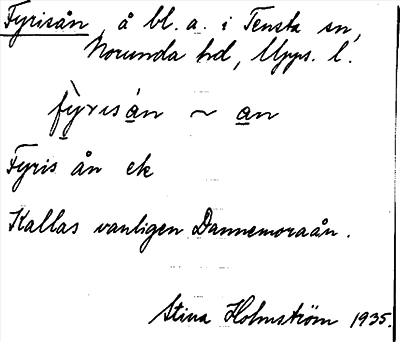 Fyrisån, å bl. a. i Tensta sn,
Norunda hd, Upps. l.
fỳ̱risán ~ a̱n
Fyris ån ek
Kallas vanligen Dannemoraån.
Stina Holmström 1935.